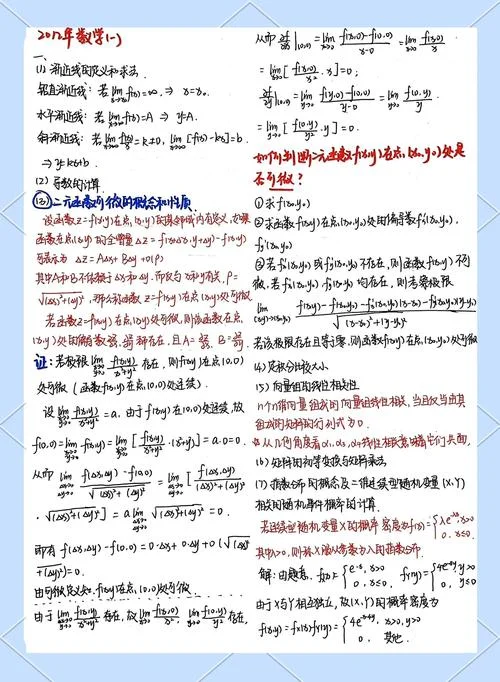 2012年数学(一)
一、
(1) 渐近线的定义和求法.
铅直渐近线: 若lim f(x)=∞, ⇒ x=x₀.
水平渐近线: 若lim f(x)=A ⇒ y=A.
斜渐近线: 若lim f(x)/x=k≠0, lim [f(x)-kx]=b.
⇒ y=kx+b.
(2) 导数的计算.
(3) 二元函数可微的概念和性质
设函数z=f(x,y)在点(x,y)的某邻域内有定义, 如果
函数在点(x,y)的全增量 Δz=f(x+Δx,y+Δy)-f(x,y)
可表示为 Δz=AΔx+BΔy+o(ρ)
其中A和B不依赖于Δx和Δy, 而仅与x和y有关, ρ=
√((Δx)²+(Δy)²), 那么称函数z=f(x,y)在点(x,y)处可微
若函数z=f(x,y)在点(x,y)处可微, 则该函数在点
(x,y)处的偏导数 ∂z/∂x, ∂z/∂y 存在, 且A=∂z/∂x, B=∂z/∂y.
证: 若极限 lim f(x,y)/(x²+y²) 存在, 则f(x,y)在点(0,0)
处可微 (函数f(x,y)在点(0,0)处连续).
设 lim f(x,y)/(x²+y²) = a. 由于f(x,y)在(0,0)处连续, 故
f(0,0)=lim f(x,y)=lim [f(x,y)/(x²+y²)·(x²+y²)]=a·0=0.
从而 lim (f(Δx,Δy)-f(0,0))/√((Δx)²+(Δy)²) = lim [f(Δx,Δy)/((Δx)²+(Δy)²)
·√((Δx)²+(Δy)²)] = a lim √((Δx)²+(Δy)²) = 0.
即有 f(Δx,Δy)-f(0,0)=0·Δx+0·Δy+o(√((Δx)²
+(Δy)²)=0.
由可微定义知, f(x,y)在点(0,0)处可微
由于 lim f(x,y)/(x²+y²) 存在, 故 lim f(x,0)/x², lim f(0,y)/y² 存在,
从而 ∂f/∂x|(0,0) = lim (f(x,0)-f(0,0))/(x-0) = lim f(x,0)/x
= lim [f(x,0)/x² · x]=0;
∂f/∂y|(0,0) = lim (f(y,0)-f(0,0))/(y-0) = lim f(0,y)/y
= lim [f(0,y)/y² · y]=0.
如何判断二元函数f(x,y)在点(x₀,y₀)处是
否可微?
① 求f(x₀,y₀)
② 求函数f(x,y)在点(x₀,y₀)处的偏导数f'x(x₀,y₀),
f'y(x₀,y₀)
③ 若f'x(x₀,y₀)或f'y(x₀,y₀)不存在, 则函数f(x,y)不可
微, 若f'x(x₀,y₀), f'y(x₀,y₀)均存在, 则考察极限
lim (f(x,y)-f(x₀,y₀)-f'x(x₀,y₀)(x-x₀)-f'y(x₀,y₀)(y-y₀))/√((x-x₀)²+(y-y₀)²)
若该极限存在且等于零, 则函数f(x,y)在点(x₀,y₀)处可微
(4) 定积分比较大小
(5) 向量组的线性相关性
n个n维向量组成的向量组线性相关, 当且仅当由其
组成的矩阵的行列式为0.
*从几何角度看α₁,α₃,α₄线性相关意味着它们共面.
(6) 矩阵的初等变换与矩阵乘法
(7) 指数分布的概念及二维连续型随机变量(X,Y)
相关的随机事件概率的计算.
若连续型随机变量X的概率密度为f(x)={λe^(-λx), x>0
0, x≤0.
其中λ>0, 则称X服从参数为λ的指数分布.
解: 由题意, f(x)={e^(-x), x>0 f(y)={4e^(-4y), y>0
0, x≤0, 0, y≤0
由于X与Y相互独立, 故(X,Y)的概率密度为
f(x,y)=fx(x)·fY(y)={4e^(-x-4y), x>0, y>0
0, 其他.